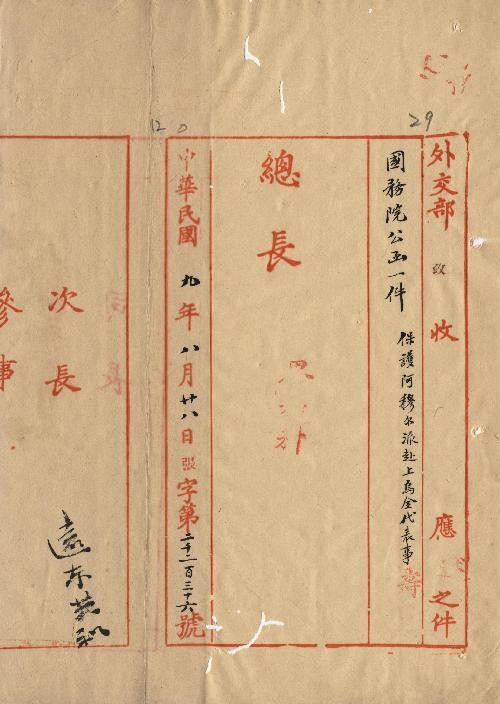 29
外交部 政 收 應 之件
國務院公函一件 保護阿穆尔派赴上烏金代表事
總長
中華民國九年八月廿八日張字第二千二百三十六號
120
次長
參事
遠東共和